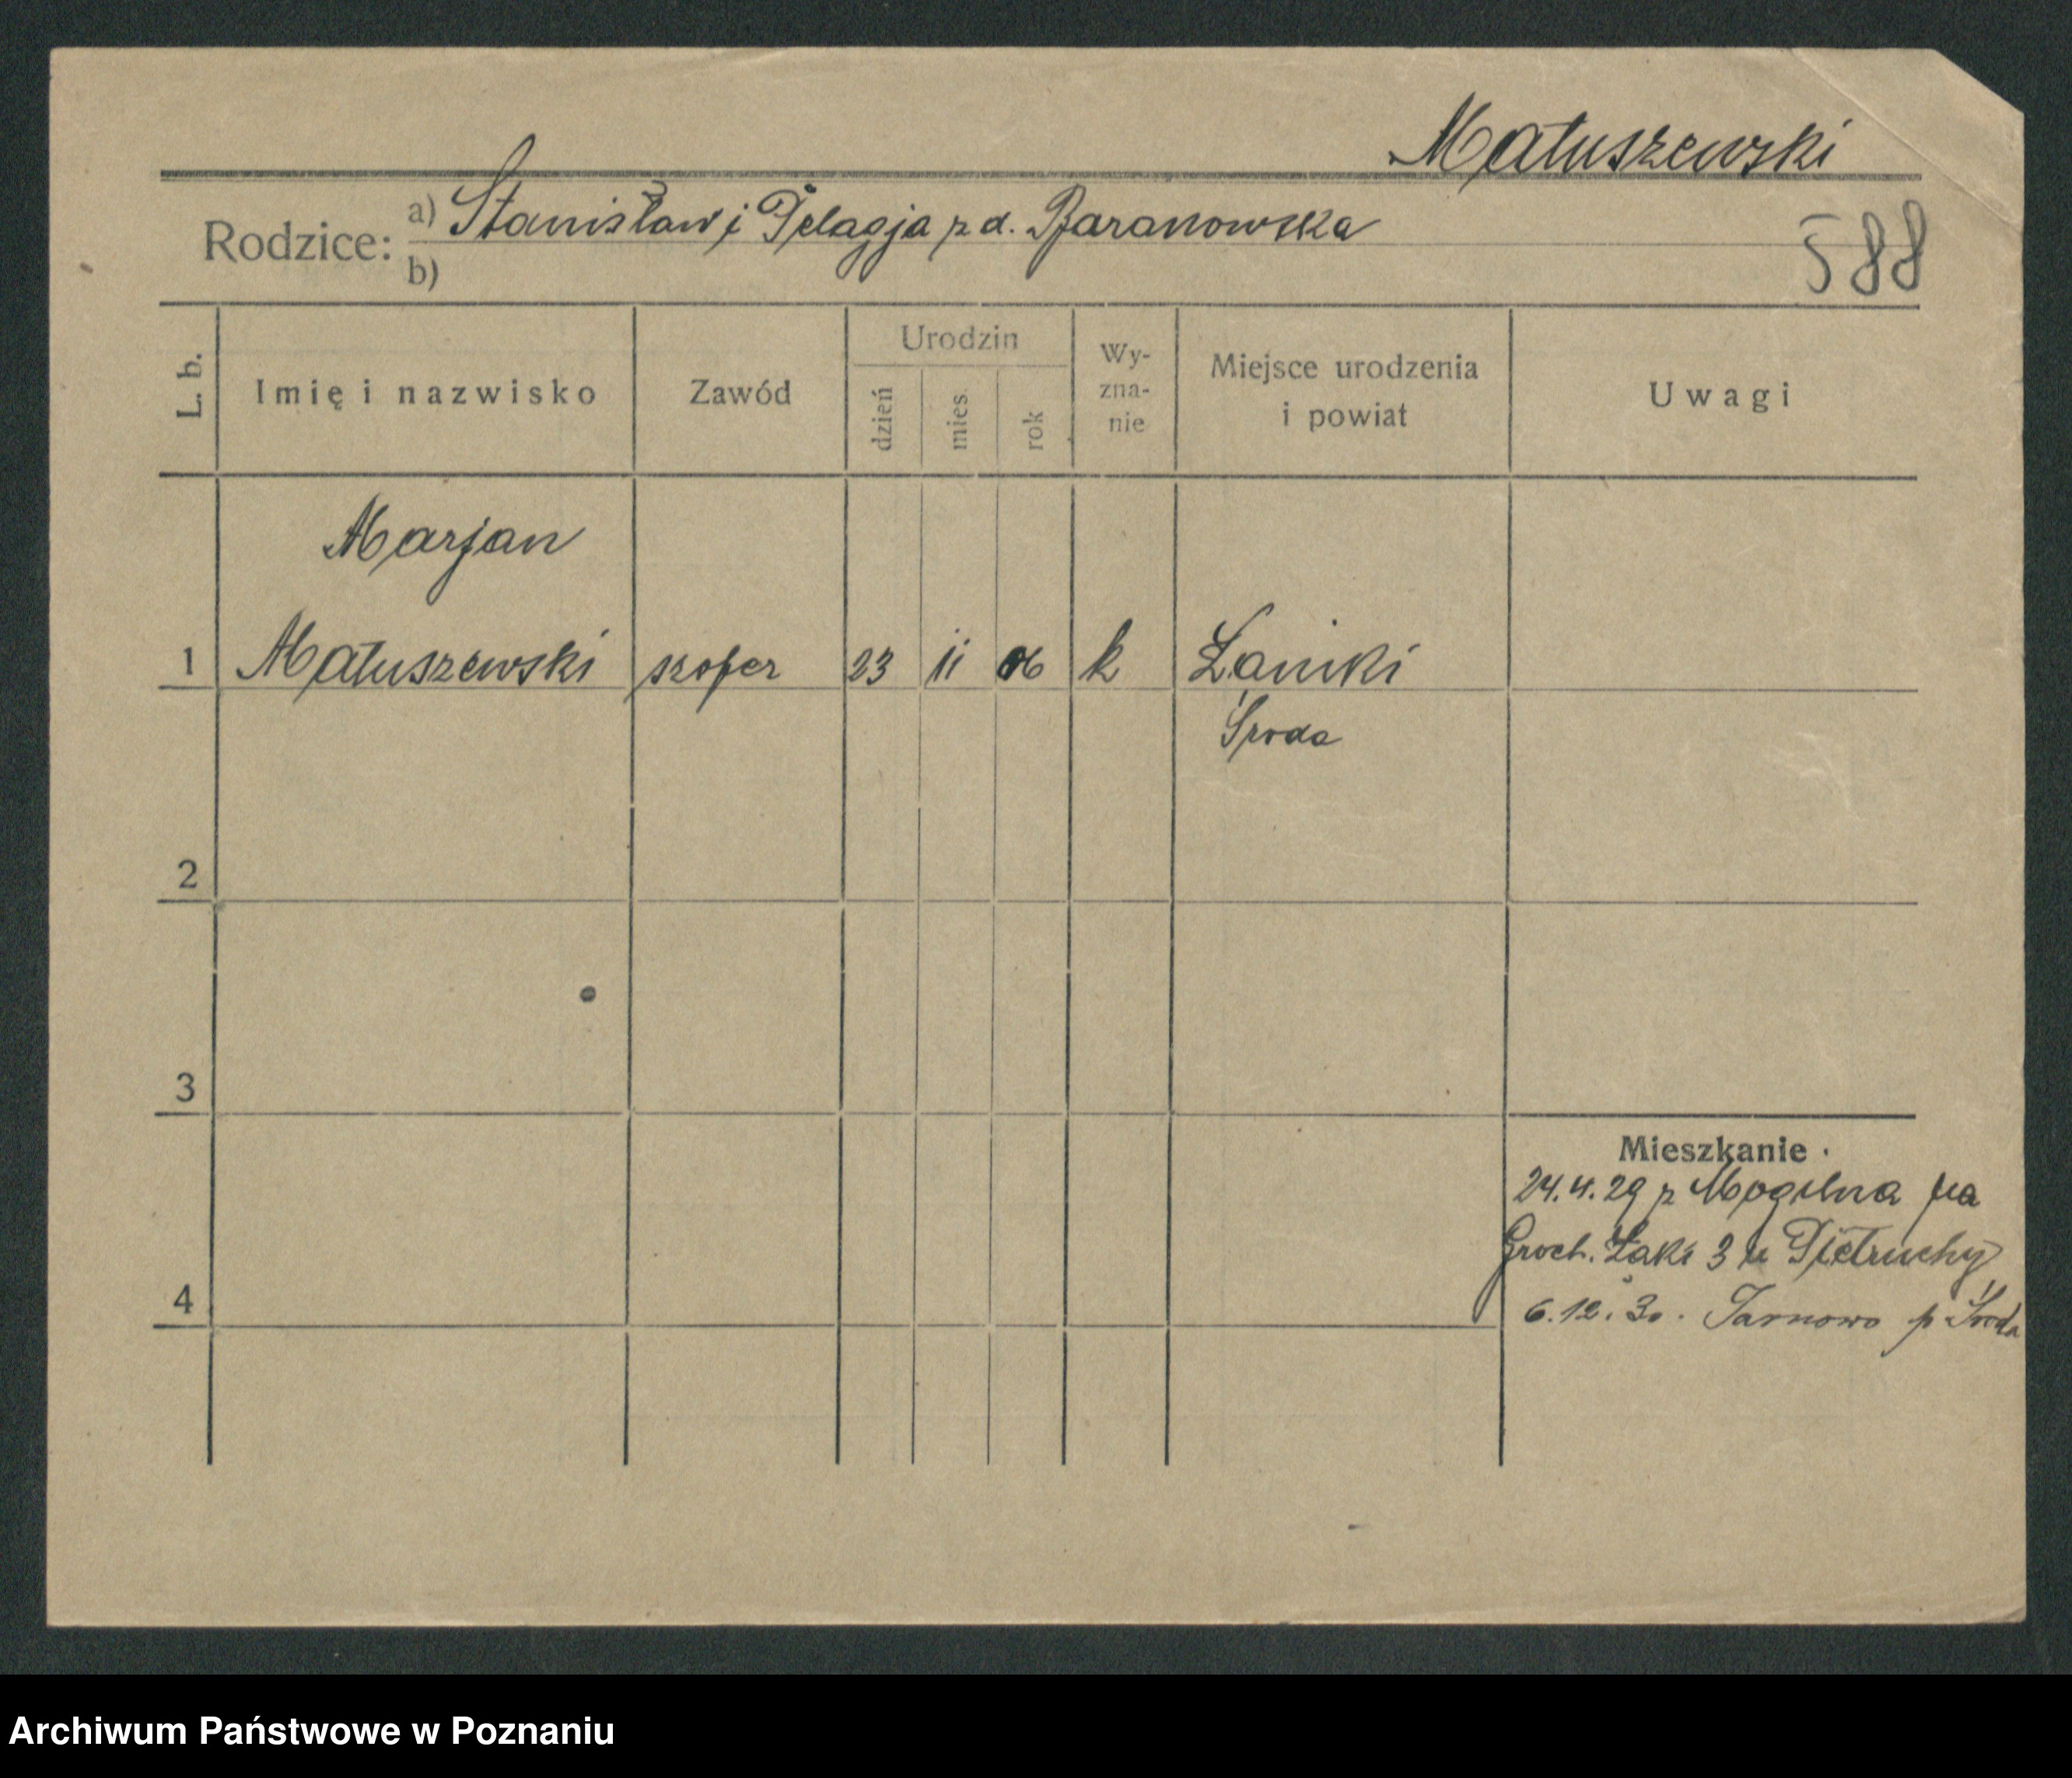 Matuszewski
Rodzice: a) Stanisław i Pelagja z d. Baranowska
b)
588
L. b. Imię i nazwisko Zawód Urodzin dzień mies. rok Wy- zna- nie Miejsce urodzenia i powiat Uwagi
Marjan
1 Matuszewski szofer 23 11 06 k
Środa
2
3
Mieszkanie
24.4.29 z Mogilna na
Groch. Łąki 3 u Pietruchy
4
6.12.30. Tarnowo p Środa
Archiwum Państwowe w Poznaniu